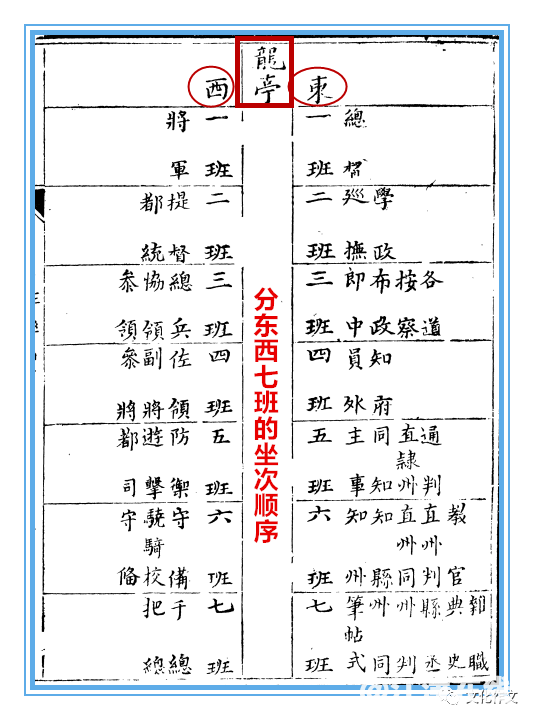 龍亭
東
西
一班
總督
二班
廵撫
學政
三班
郎中
布政
按察
各道
四班
員外
知府
五班
主事
同知
直隸州
通判
六班
知州
知縣
直州同
直州判
教官
七班
筆帖式
州同
州判
縣丞
典史
雜職
一班
將軍
二班
提督
都統
三班
總兵
協領
叅領
四班
佐領
副將
叅將
五班
防禦
遊擊
都司
六班
守備
驍騎校
守俻
七班
千總
把總
分东西七班的坐次顺序